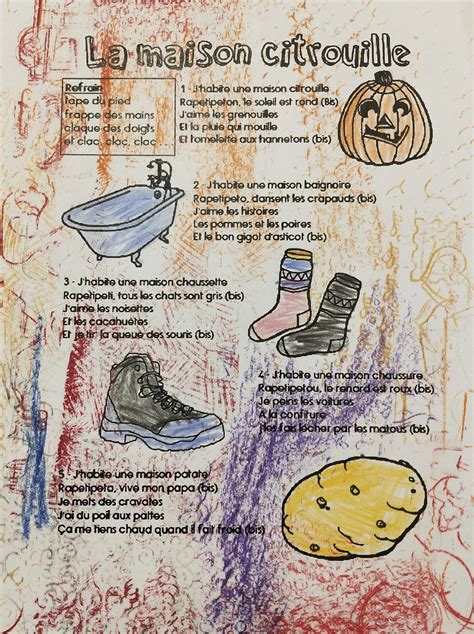 La maison citrouille
Refrain
tape du pied
frappe des mains
claque des doigts
et clac, clac, clac ...
1 - J'habite une maison citrouille
Rapetipeton, le soleil est rond (Bis)
J'aime les grenouilles
Et la pluie qui mouille
Et l'omelette aux hannetons (bis)
2 - J'habite une maison baignoire
Rapetipeto, dansent les crapauds (bis)
J'aime les histoires
Les pommes et les poires
Et le bon gigot d'asticot (bis)
3 - J'habite une maison chaussette
Rapetipeti, tous les chats sont gris (bis)
J'aime les noisettes
Et les cacahuètes
Et je tir la queue des souris (bis)
4 - J'habite une maison chaussure
Rapetipetou, le renard est roux (bis)
Je peins les voitures
A la confiture
les fais lécher par les matous (bis)
5 - J'habite une maison patate
Rapetipeta, vive mon papa (bis)
Je mets des cravates
J'ai du poil aux pattes
Ça me tiens chaud quand il fait froid (bis)